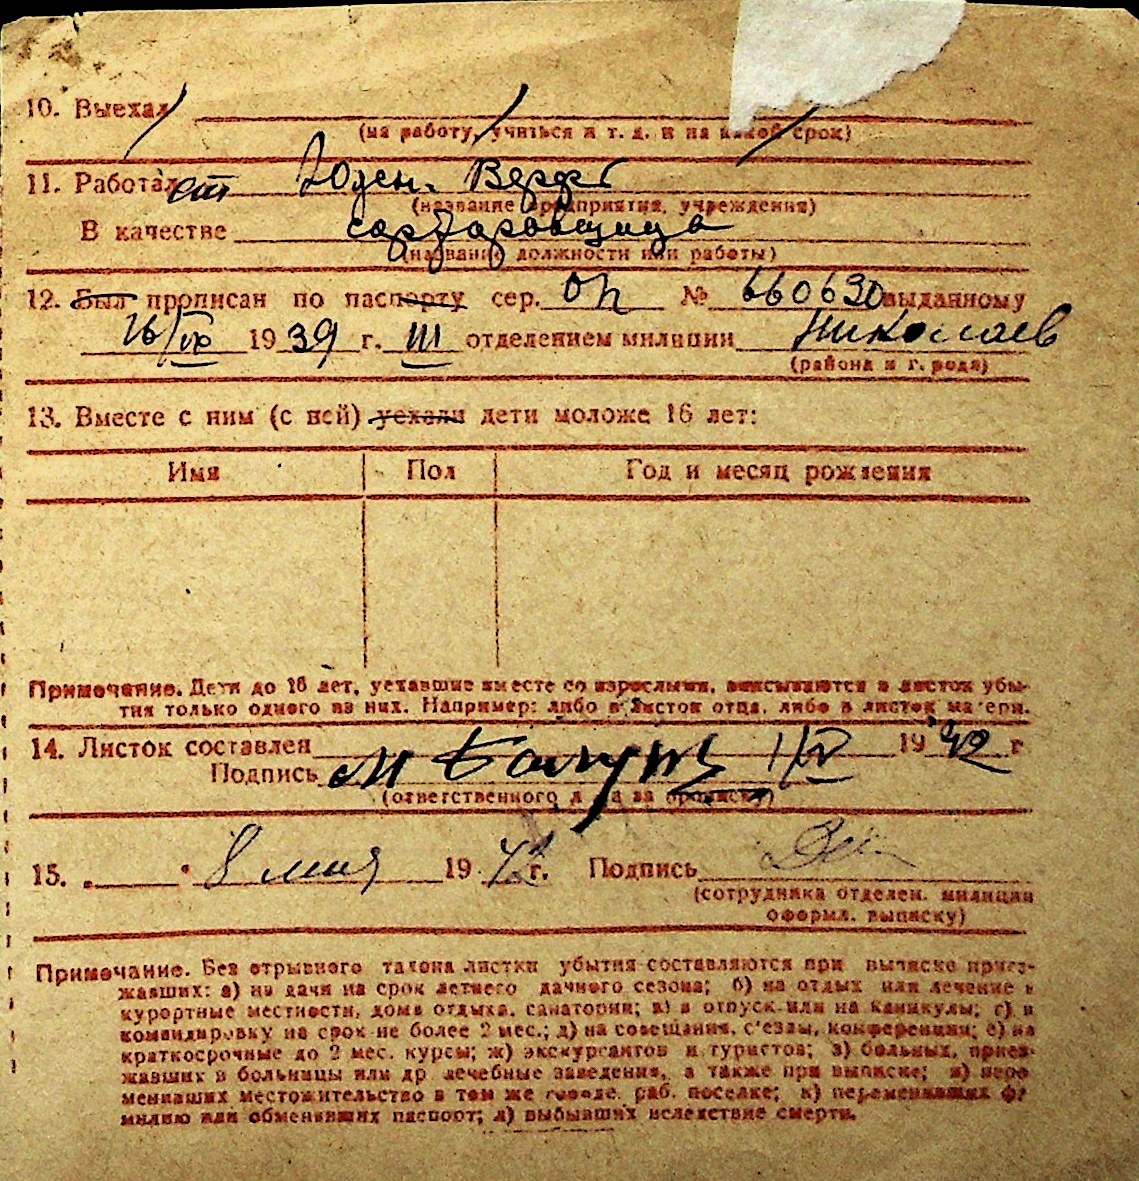 10. Выехал
(на работу, учиться и т. д. и на какой срок)
11. Работал
(название предприятия, учреждения)
В качестве сортировщица
(название должности или работы)
12. Был прописан по паспорту сер. ОП № 660630 выданному
1939 г. III отделением милиции Николаев
(района и города)
13. Вместе с ним (с ней) уехали дети моложе 16 лет:
Имя Пол Год и месяц рождения
Примечание. Дети до 16 лет, уехавшие вместе со взрослыми, вписываются в листок убы-
тия только одного из них. Например: либо в листок отца, либо в листок матери.
14. Листок составлен 1/IV 1942 г
Подпись
(ответственного лица за прописку)
15. „ “ 8 мая 1942 г. Подпись
(сотрудника отделен. милиции
оформл. выписку)
Примечание. Без отрывного талона листки убытия составляются при выписке приез-
жавших: а) на дачи на срок летнего дачного сезона; б) на отдых или лечение в
курортные местности, дома отдыха, санатории; в) в отпуск или на каникулы; г) в
командировку на срок не более 2 мес.; д) на совещания, с'езды, конференции; е) на
краткосрочные до 2 мес. курсы; ж) экскурсантов и туристов; з) больных, приез-
жавших в больницы или др лечебные заведения, а также при выписке; и) пере
менивших местожительство в том же городе, раб. поселке; к) переменивших фа
милию или обменявших паспорт; л) выбывших вследствие смерти.